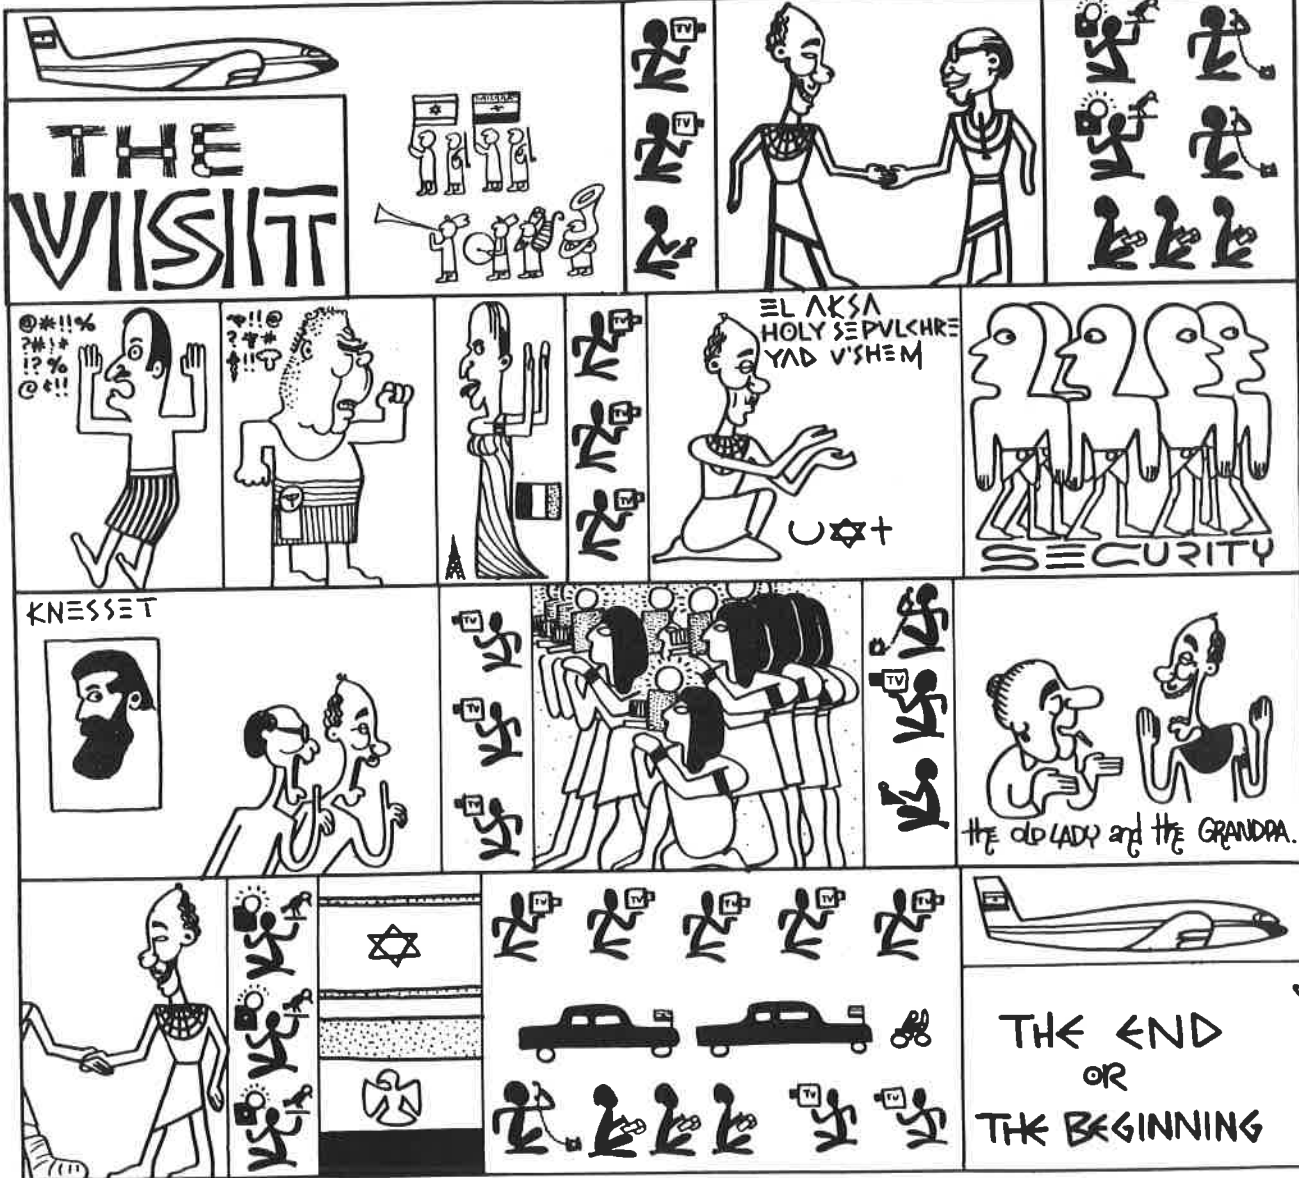 THE
VISIT
TV
TV
@*!!%
?#!*
!?%
@¢!!
!!@
?
!!
TV
TV
TV
EL AKSA
HOLY SEPULCHRE
YAD V'SHEM
SECURITY
KNESSET
TV
TV
TV
TV
the OLD LADY and the GRANDPA.
TV
TV
TV
TV
TV
TV
TV
THE END
OR
THE BEGINNING